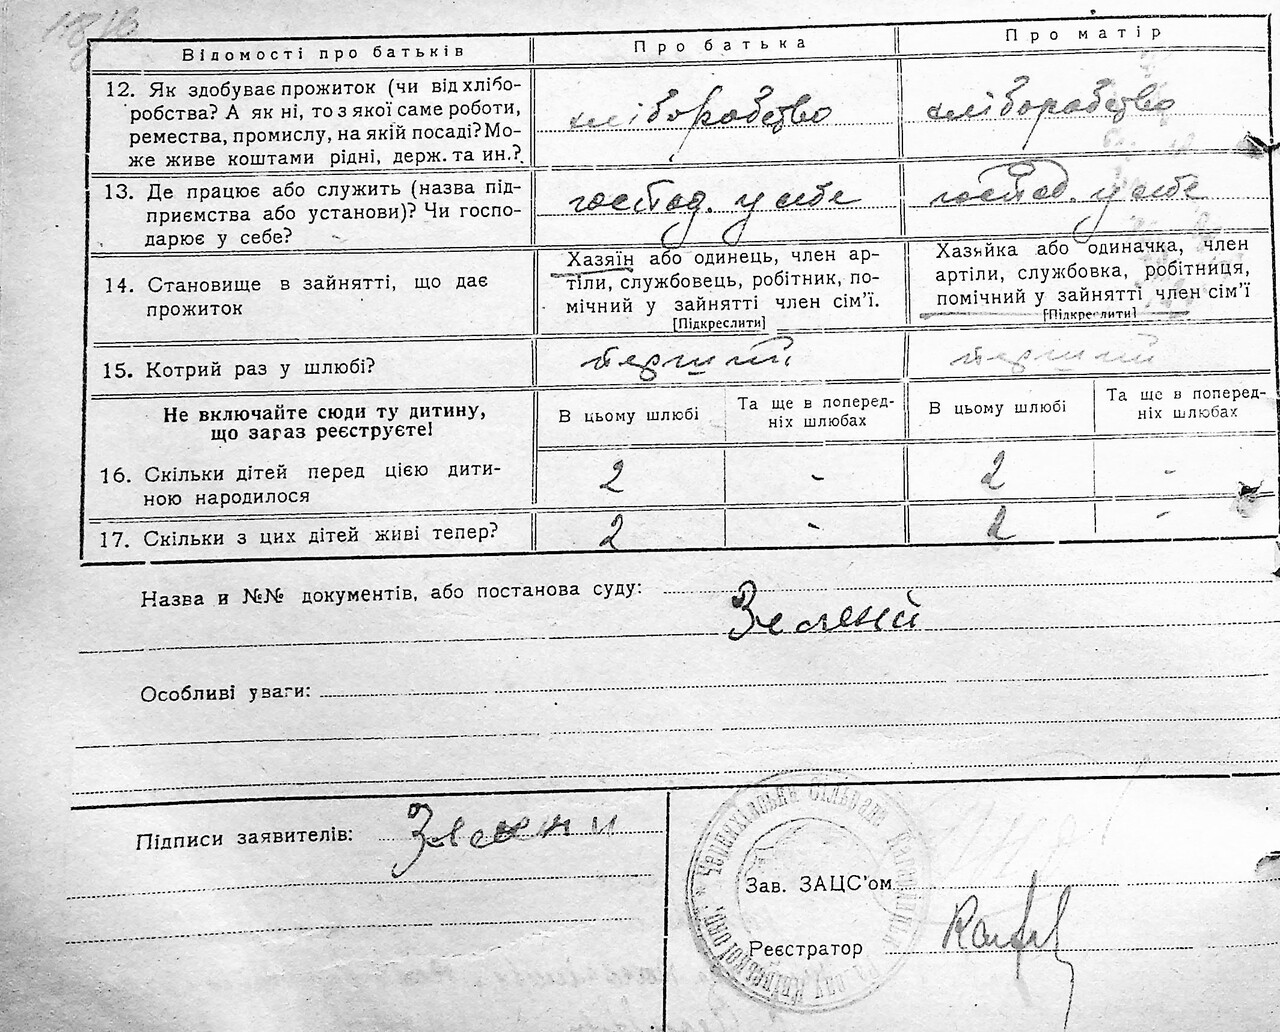 Відомості про батьків
Про батька
Про матір
12. Як здобуває прожиток (чи від хлібо-
робства? А як ні, то з якої саме роботи,
ремества, промислу, на якій посаді? Мо-
же живе коштами рідні, держ. та ин.?
хліборобство
хліборобство
13. Де працює або служить (назва під-
приємства або установи)? Чи госпо-
дарює у себе?
господ. у себе
господ. у себе
14. Становище в зайнятті, що дає
прожиток
Хазяїн або одинець, член ар-
тіли, службовець, робітник, по-
мічний у зайнятті член сім’ї.
[Підкреслити]
Хазяйка або одиначка, член
артіли, службовка, робітниця,
помічний у зайнятті член сім’ї
[Підкреслити]
15. Котрий раз у шлюбі?
перший
перший
Не включайте сюди ту дитину,
що зараз реєструєте!
В цьому шлюбі
Та ще в поперед-
ніх шлюбах
В цьому шлюбі
Та ще в поперед-
ніх шлюбах
16. Скільки дітей перед цією дити-
ною народилося
2
-
2
-
17. Скільки з цих дітей живі тепер?
2
-
2
-
Назва и №№ документів, або постанова суду:
Зелений
Особливі уваги:
Підписи заявителів:
Зав. ЗАЦС’ом
Реєстратор